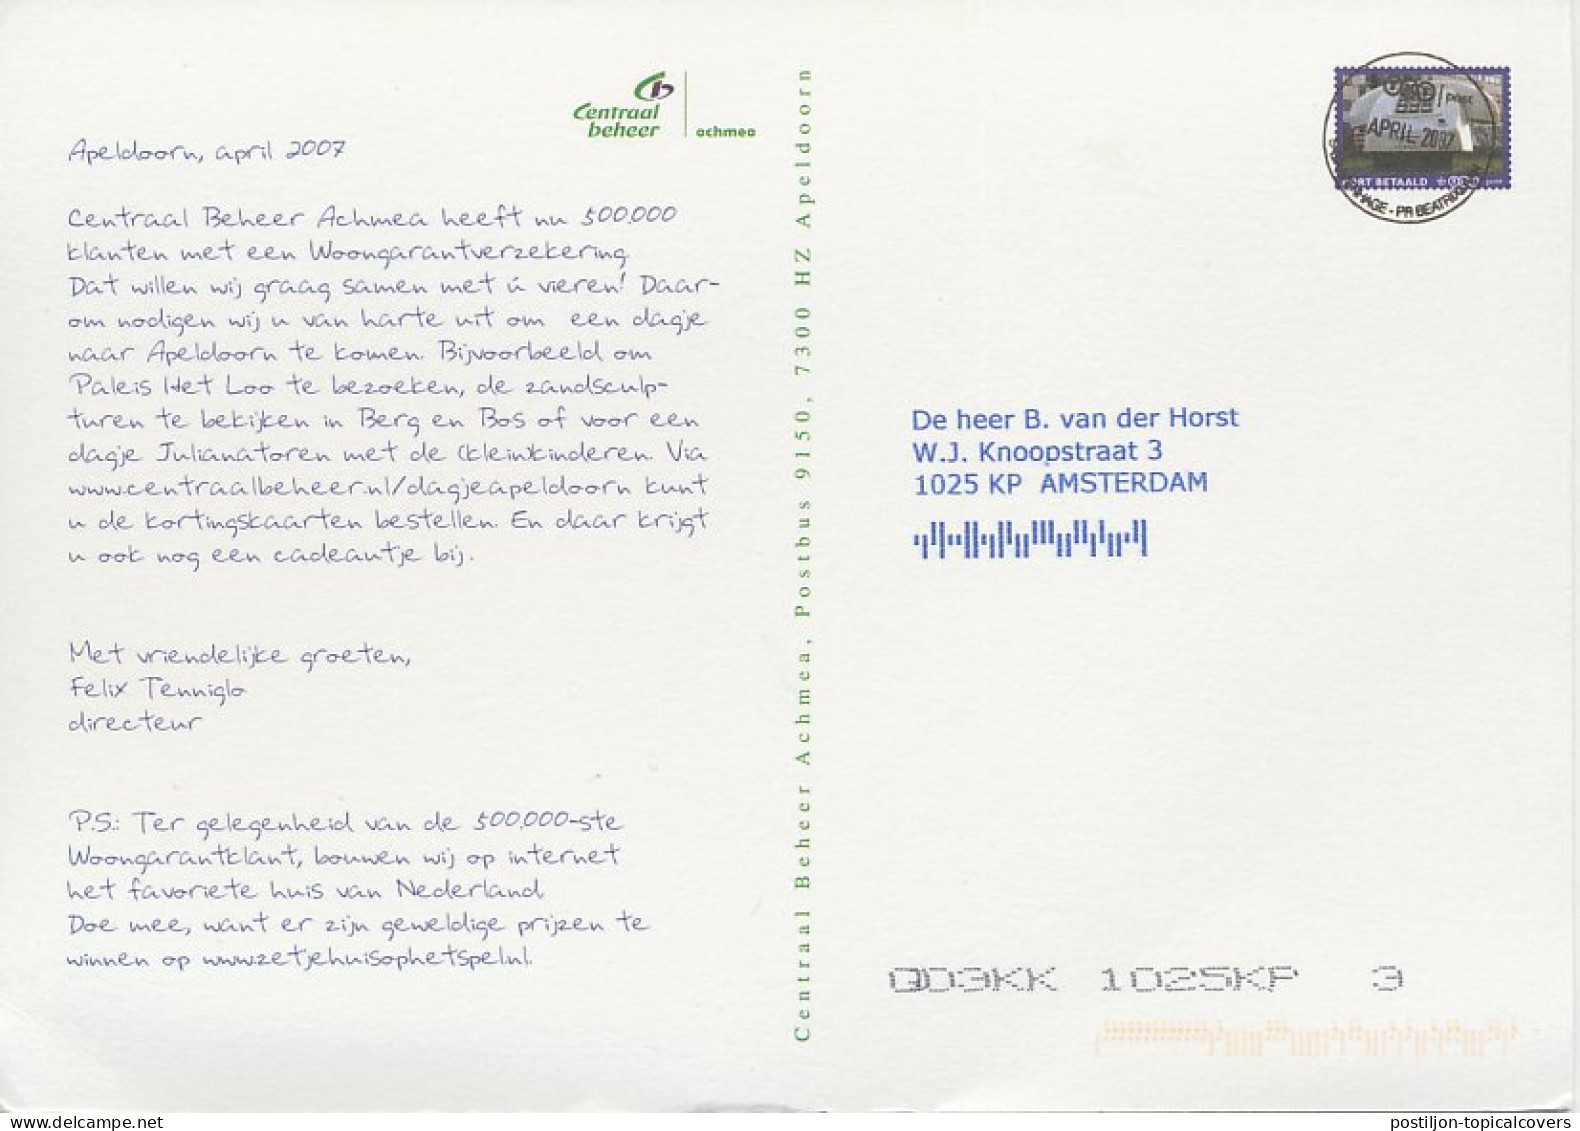 Centraal
beheer
achmea
Apeldoorn, april 2007
Centraal Beheer Achmea heeft nu 500.000
klanten met een Woongarantverzekering.
Dat willen wij graag samen met ú vieren! Daar-
om nodigen wij u van harte uit om een dagje
naar Apeldoorn te komen. Bijvoorbeeld om
Paleis Het Loo te bezoeken, de zandsculp-
turen te bekijken in Berg en Bos of voor een
dagje Julianatoren met de (klein)kinderen. Via
www.centraalbeheer.nl/dagjeapeldoorn kunt
u de kortingskaarten bestellen. En daar krijgt
u ook nog een cadeautje bij.
Met vriendelijke groeten,
Felix Tenniglo
directeur
P.S.: Ter gelegenheid van de 500.000-ste
Woongarantklant, bouwen wij op internet
het favoriete huis van Nederland.
Doe mee, want er zijn geweldige prijzen te
winnen op www.zetjehuisophetspel.nl.
Centraal Beheer Achmea, Postbus 9150, 7300 HZ Apeldoorn
post
APRIL 2007
PORT BETAALD
post
PR BEATRIXLAAN
De heer B. van der Horst
W.J. Knoopstraat 3
1025 KP AMSTERDAM
QD3KK 1025KP 3
postiljon-topicalcovers